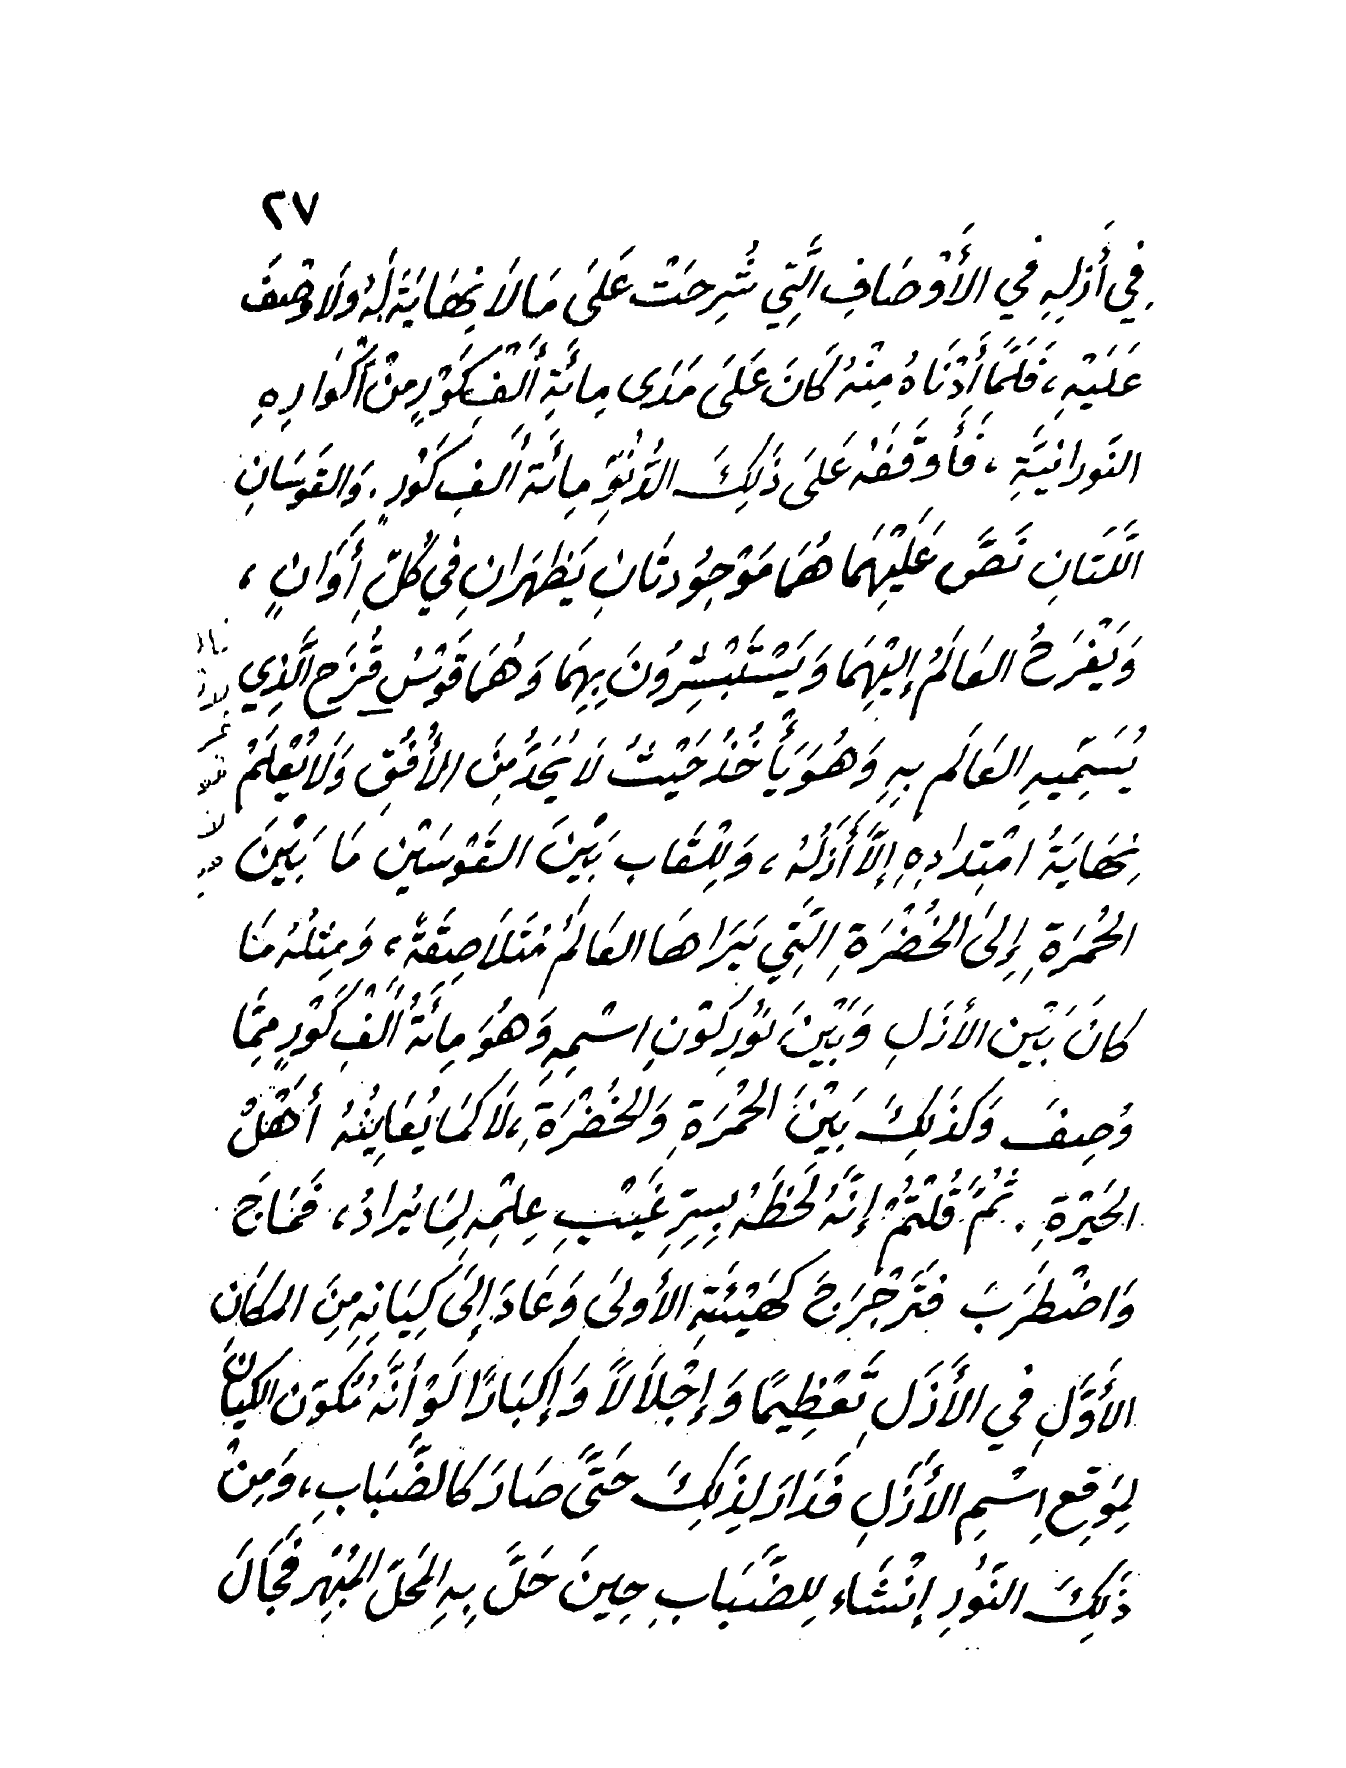 ٢٧
فِي أَزَلِهِ فِي الأَوْصَافِ الَّتِي شُرِحَتْ عَلَى مَا لَا نِهَايَةَ لَهُ وَلَا وَصْفَ
عَلَيْهِ، فَلَمَّا أَدْنَاهُ مِنْهُ كَانَ عَلَى مَدَى مِائَةِ أَلْفِ كَوْرٍ مِنْ أَكْوَارِهِ
النَّورانِيَّةِ، فَأَوْقَفَهُ عَلَى ذَلِكَ الدُّنُوِّ مِائَةَ أَلفِ كَوْرٍ. وَالقَوسَانِ
الَّلتَانِ نَصَّ عَلَيْهِمَا هُمَا مَوْجُودَتَانِ يَظهَرَانِ فِي كُلِّ أَوَانٍ،
وَيَفْرَحُ العَالَمُ إِليْهِمَا وَيَسْتَبْشِرُونَ بِهِمَا وَهُمَا قَوْسُ قُزَحِ الَّذِي
يُسَمِّيهِ العَالَم بِهِ وَهُوَ يَأْخُذُ حَيْثُ لَا يُحَدُّ مِنَ الأُفُقِ وَلَا يُعْلَمُ
نِهَايَةُ امْتِدَادِهِ إِلَّا أَزَلُهُ، وَلِلْقَابِ بَيْنَ القَوْسَيْنِ مَا بَيْنَ
الحُمرَةِ إِلَى الخُضْرَةِ الَّتِي يَرَاهَا العَالَمُ مُتَلَاصِقَةٌ، وَمِثلُهُ مَا
كَانَ بَيْنَ الأَزَلِ وَبَيْنَ نُورِ كَوْنِ اسْمِهِ وَهُوَ مِائَةُ أَلْفِ كَوْرٍ مِمَّا
وُصِفَ وَكَذَلِكَ بَيْنَ الحُمْرَةِ وَالخُضْرَةِ، لَا كَمَا يُعَايِنُهُ أَهْلُ
الحَيْرَةِ. ثُمَّ قُلْتُمْ إِنَّهُ لَحَظَهُ بِسِرِّ غَيْبِ عِلْمِهِ لِمَا يُرَادُ، فَمَاجَ
وَاضْطَرَبَ فَتَرَجْرَجَ كَهَيْئَتِهِ الأُولَى وَعَادَ إِلَى كِيَانِهِ مِنَ المكَانِ
الأَوَّلِ فِي الأَزَلِ تَعْظِيمًا وَإِجْلَالاً وَإِكبَارًا لَوْ أَنَّهُ تَكوَّن الكِيَانُ
لِمَوقِعِ اِسْمِ الأَزَلِ فَدَارَ لِذَلِكَ حَتَّى صَارَ كَالضَّبَابِ، وَمِنْ
ذَلِكَ النَّورِ إِنْشَاء لِلضَّبَابِ حِينَ حَلَّ بِهِ المَحَلّ المُنِهر فَجَالَ